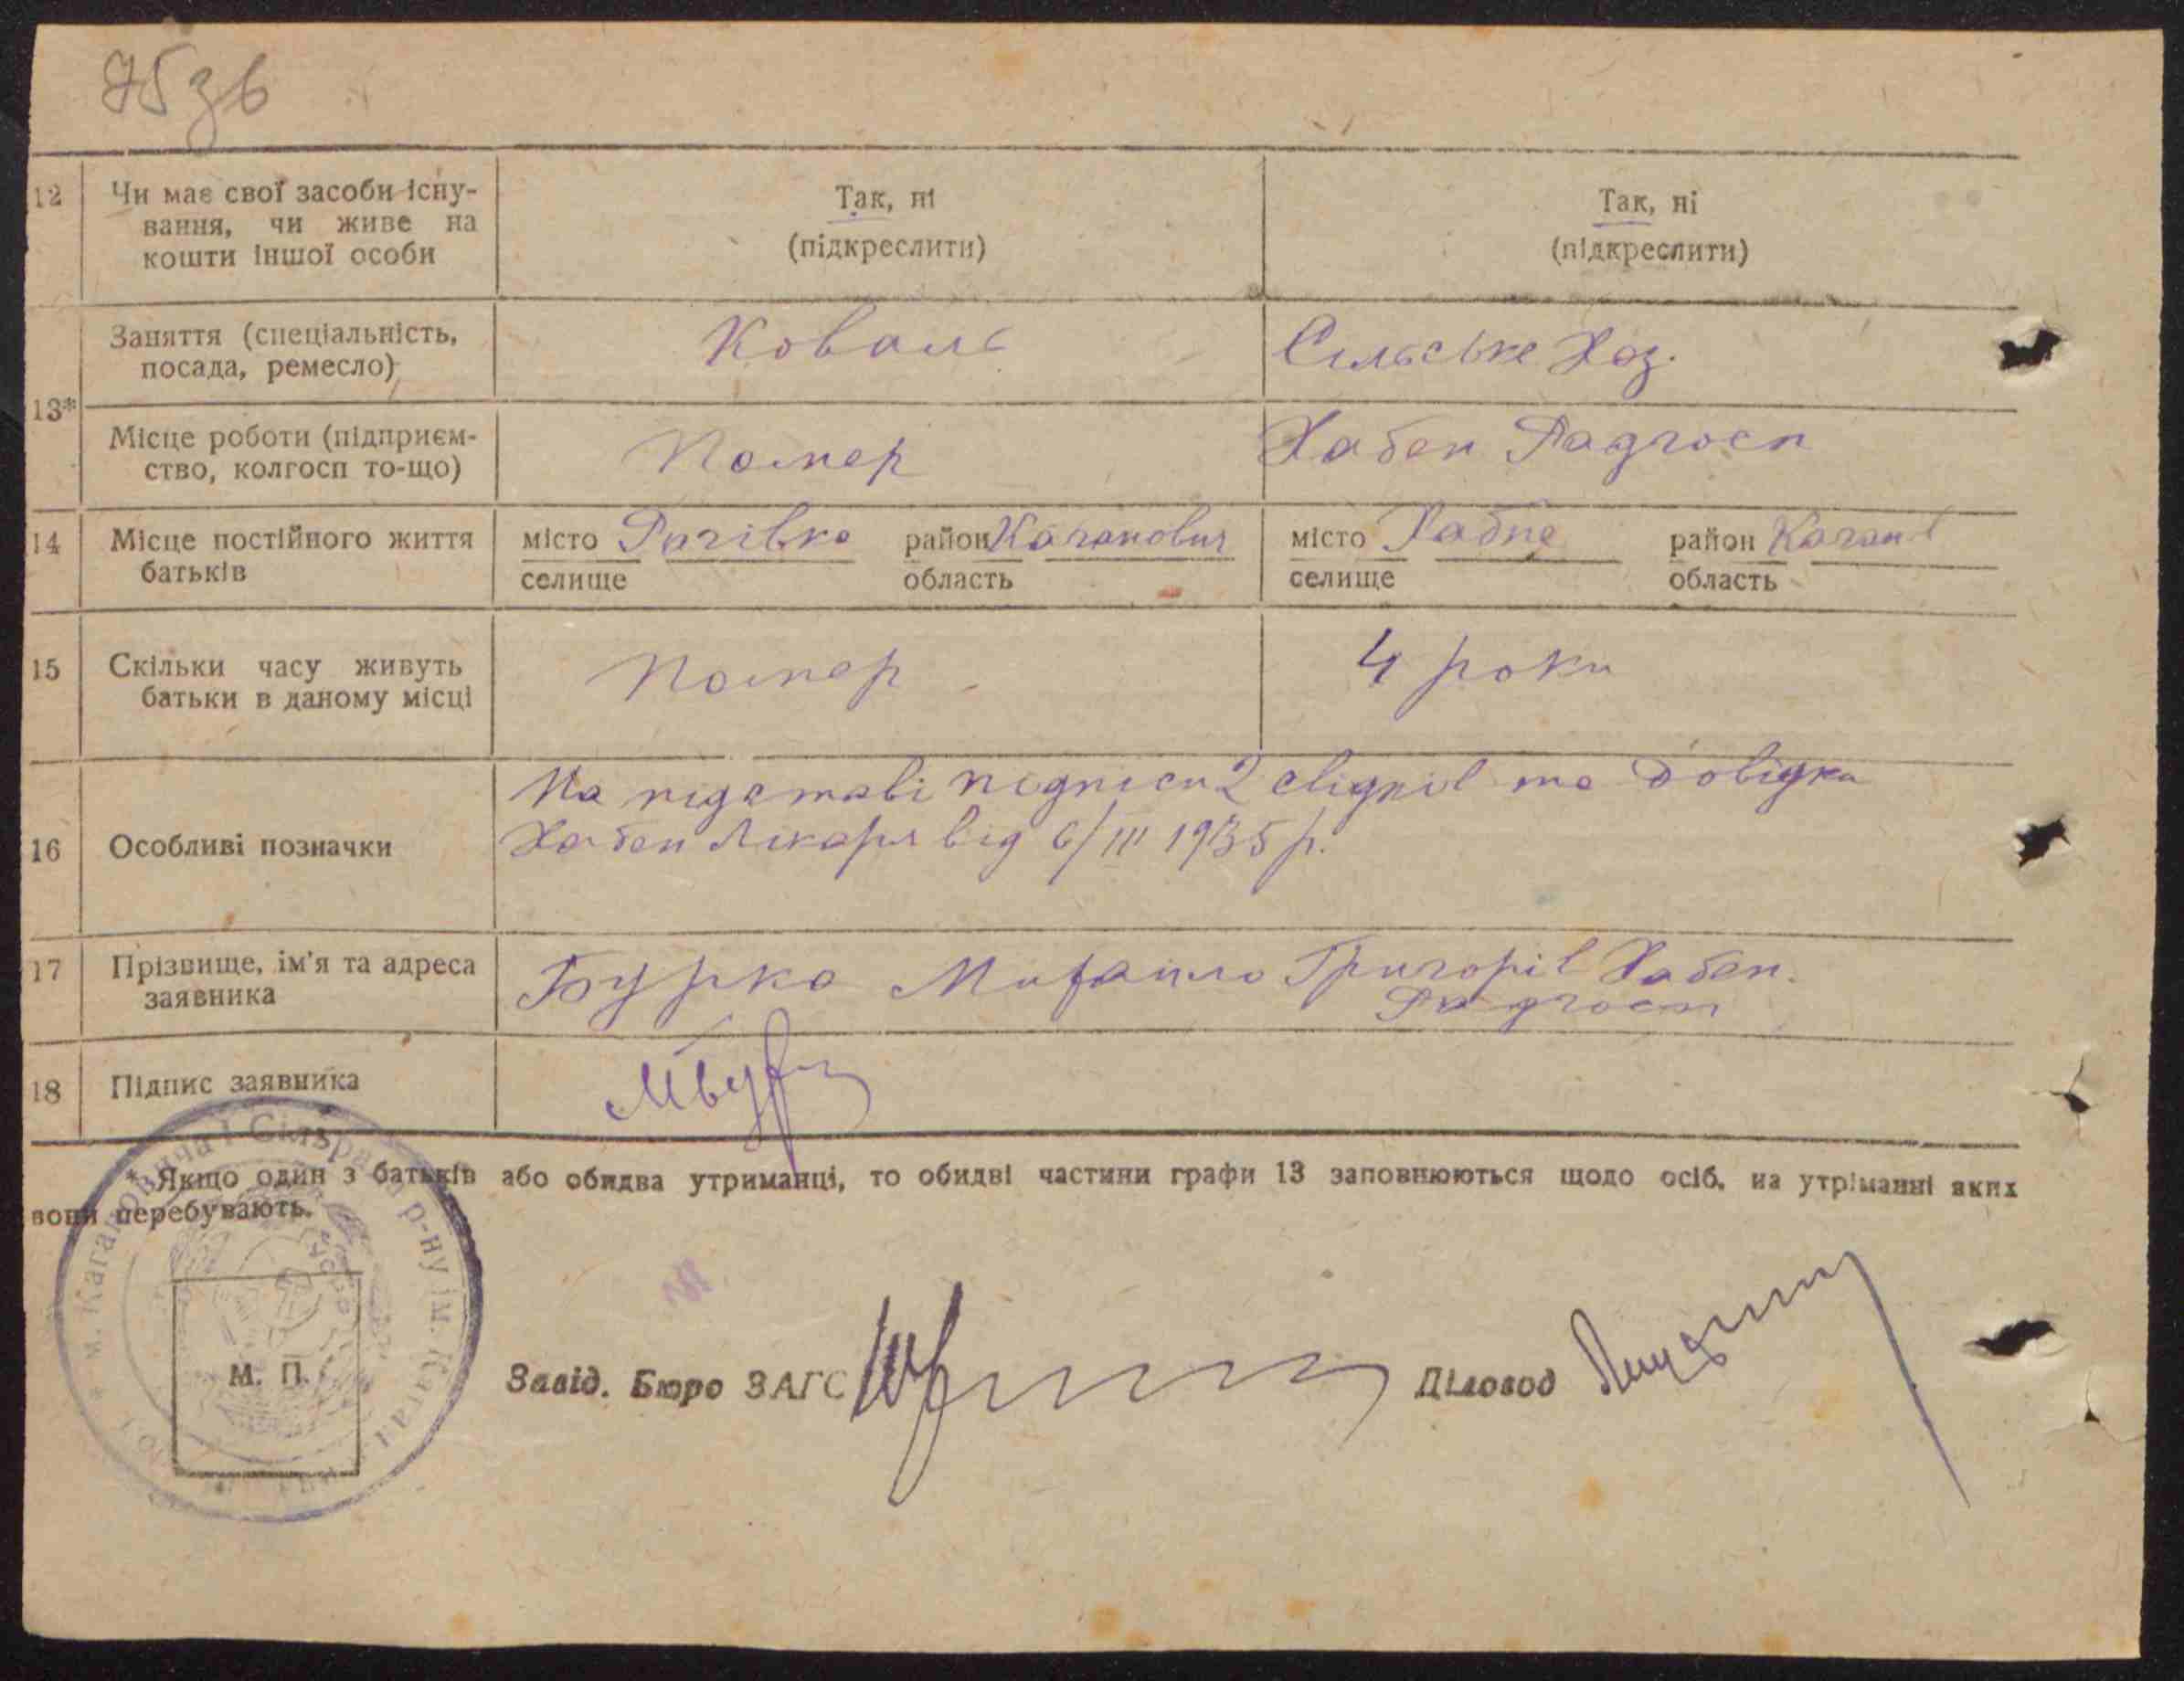 75 зв
12 Чи має свої засоби існу-
вання, чи живе на
кошти іншої особи
Так, ні
(підкреслити)
Так, ні
(підкреслити)
13*
Заняття (спеціальність,
посада, ремесло)
Коваль
Сільське Хоз.
Місце роботи (підприєм-
ство, колгосп то-що)
Помер
Хабен Радгосп
14 Місце постійного життя
батьків
місто Рагівка район Каганович
селище область
місто Хабне район Каган
селище область
15 Скільки часу живуть
батьки в даному місці
Помер
4 роки
16 Особливі позначки
На підставі підписи 2 свідків та довідки
Хабен Лікаря від 6/III 1935 р.
17 Прізвище, ім'я та адреса
заявника
Бурка Михайло Григорів Хабен.
Радгосп
18 Підпис заявника
* Якщо один з батьків або обидва утриманці, то обидві частини графи 13 заповнюються щодо осіб, на утріманні яких
вони перебувають.
м. Кагановича і Сількради р-ну ім. Каган
М. П.
Завід. Бюро ЗАГС
Діловод